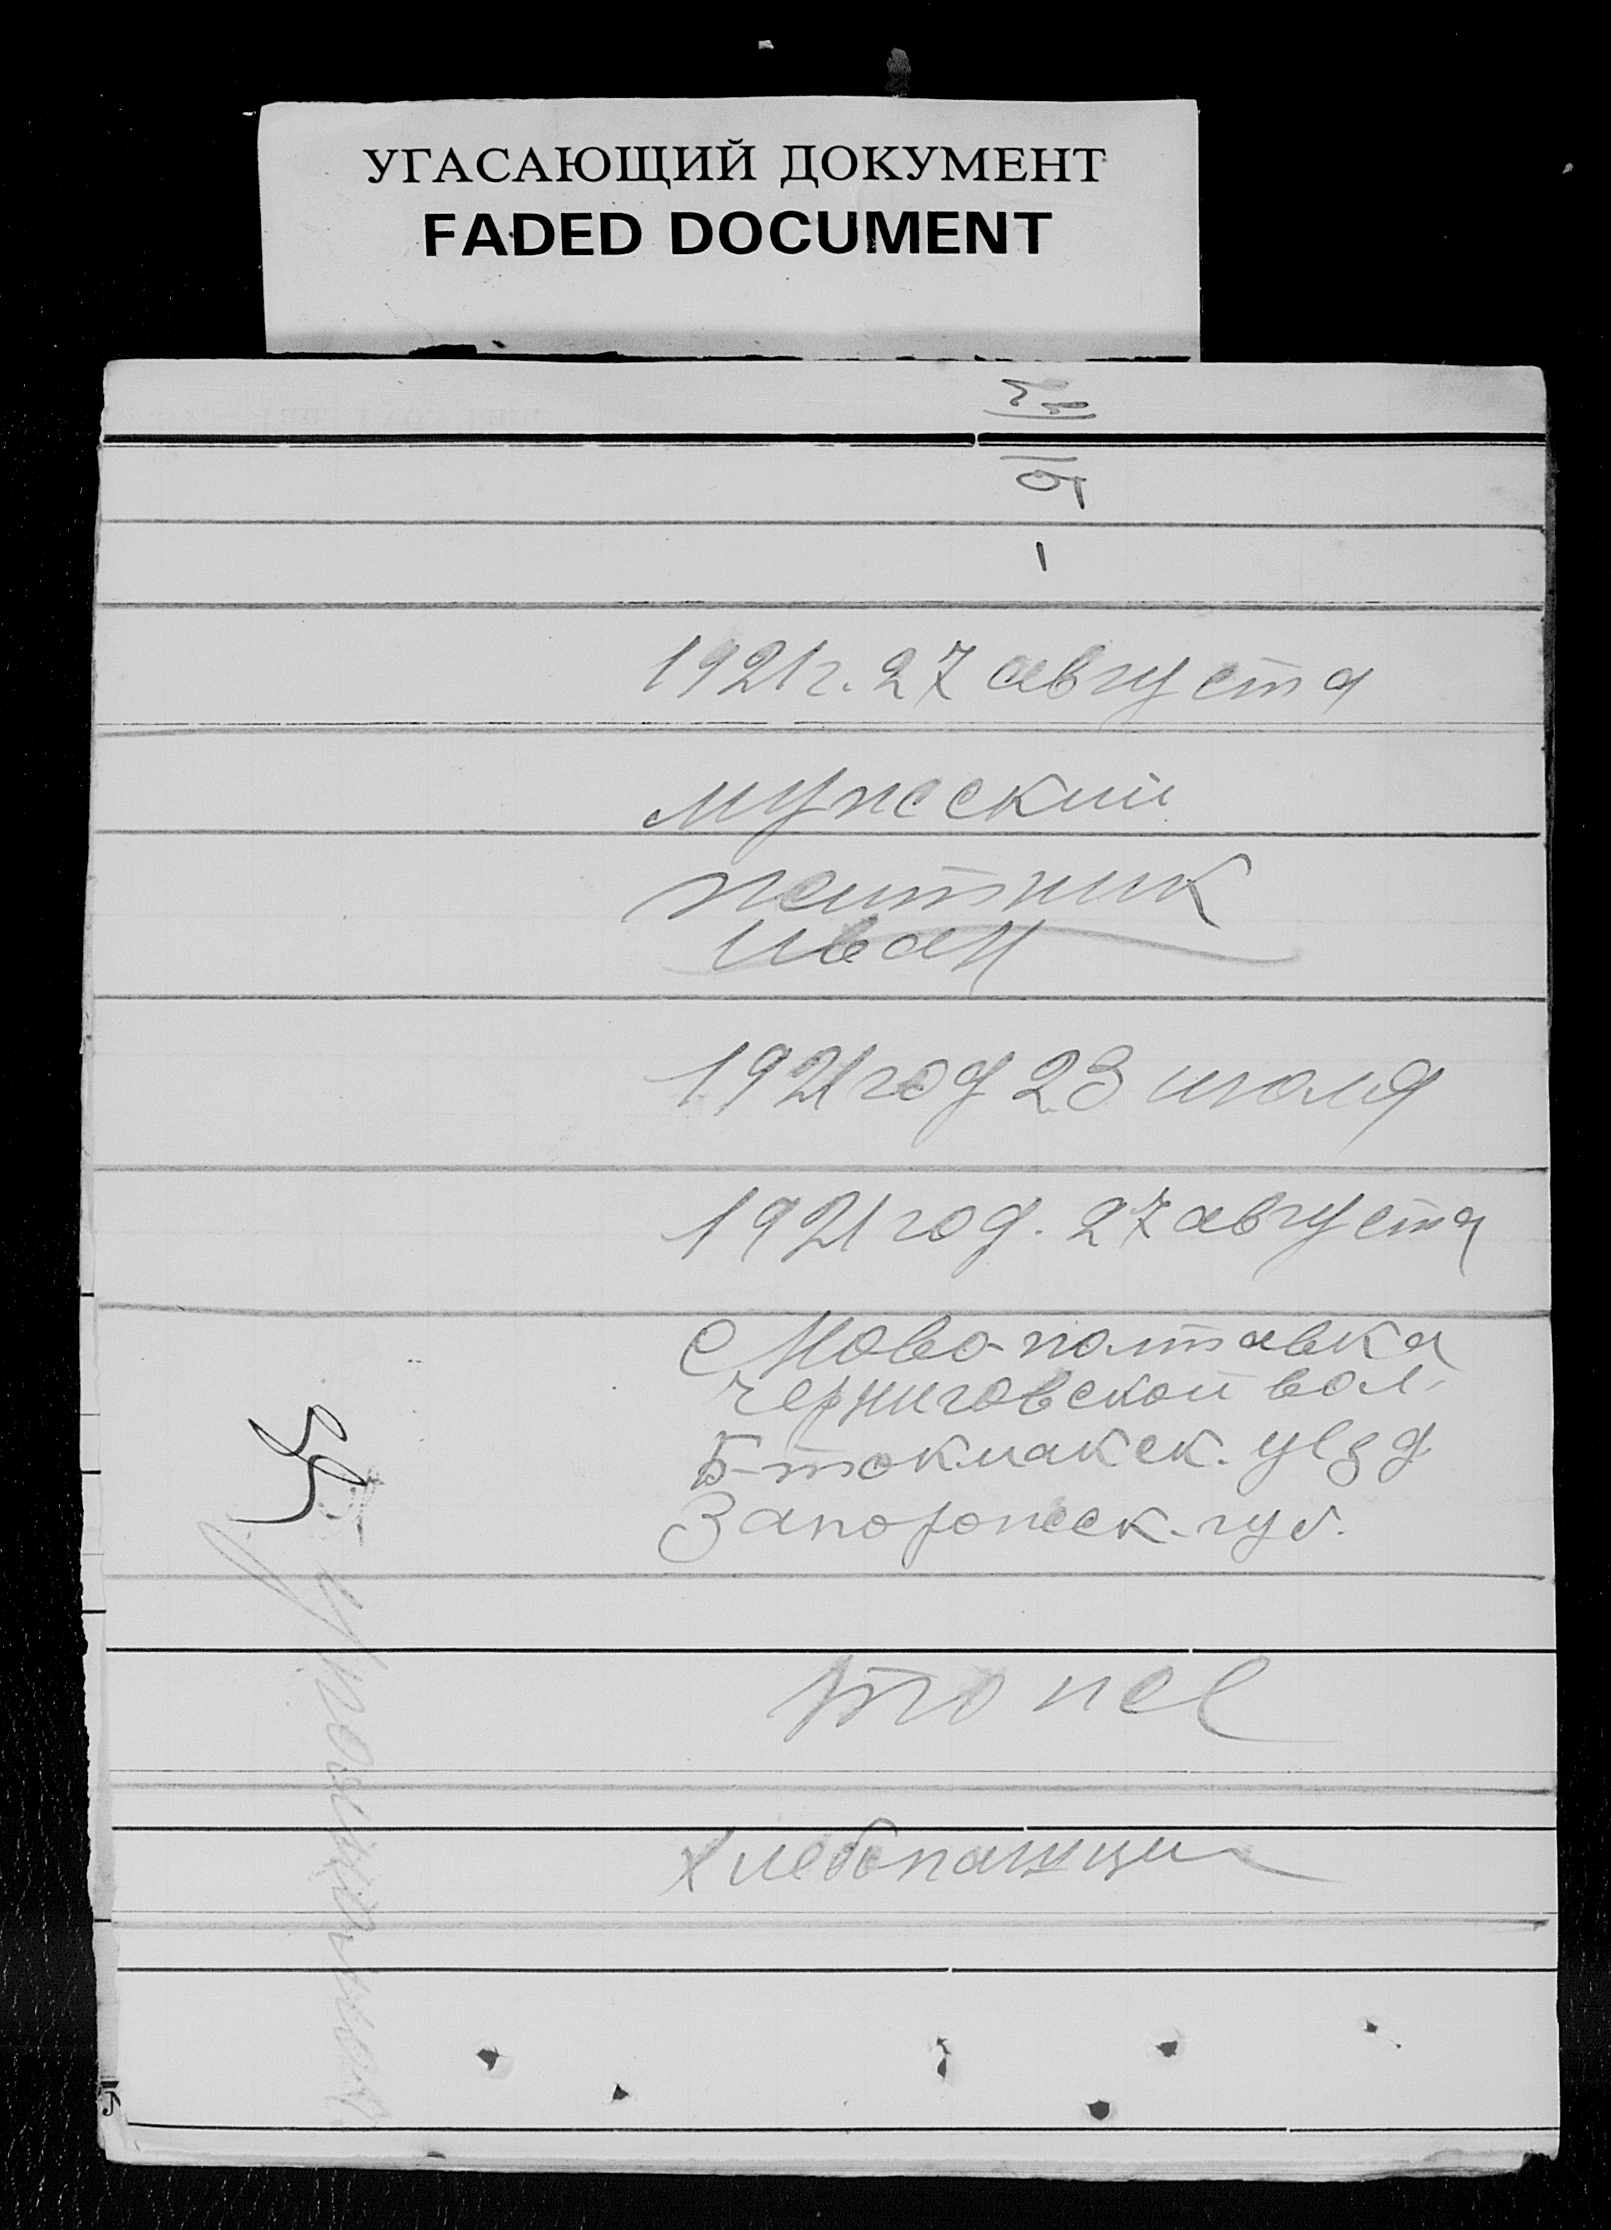 УГАСАЮЩИЙ ДОКУМЕНТ
FADED DOCUMENT
1
1921г. 27 августа
мужеский
Иван
1921 год 23 июля
1921 год. 27 августа
с Ново-полтавка
черниговской вол.
Б-токмакск. уезд
Запорожск. губ.
тоже
Хлебопашци